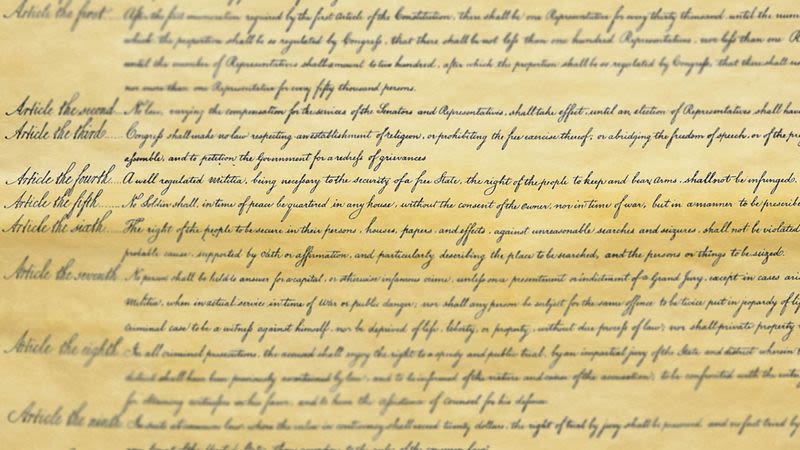 Article the first After the first enumeration required by the first Article of the Constitution, there shall be one Representative for every thirty thousand, until the num
which, the proportion shall be so regulated by Congress, that there shall be not less than one hundred Representatives, nor less than one R
until the number of Representatives shall amount to two hundred, after which the proportion shall be so regulated by Congress, that there shall
nor more than one Representative for every fifty thousand persons.
Article the second No law, varying the compensation for the services of the Senators and Representatives, shall take effect, until an election of Representatives shall have
Article the third Congress shall make no law respecting an establishment of religion, or prohibiting the free exercise thereof; or abridging the freedom of speech, or of the pre
assemble, and to petition the Government for a redress of grievances
Article the fourth A well regulated Militia, being necessary to the security of a free State, the right of the people to keep and bear Arms, shall not be infringed.
Article the fifth No Soldier shall, in time of peace be quartered in any house, without the consent of the Owner, nor in time of war, but in a manner to be prescribe
Article the sixth The right of the people to be secure in their persons, houses, papers, and effects, against unreasonable searches and seizures, shall not be violated
probable cause, supported by Oath or affirmation, and particularly describing the place to be searched, and the persons or things to be seized.
Article the seventh No person shall be held to answer for a capital, or otherwise infamous crime, unless on a presentment or indictment of a Grand Jury, except in cases ari
Militia, when in actual service in time of War or public danger; nor shall any person be subject for the same offence to be twice put in jeopardy of li
criminal case to be a witness against himself, nor be deprived of life, liberty, or property, without due process of law; nor shall private property
Article the eighth In all criminal prosecutions, the accused shall enjoy the right to a speedy and public trial, by an impartial jury of the State and district wherein t
district shall have been previously ascertained by law, and to be informed of the nature and cause of the accusation; to be confronted with the witn
for obtaining witnesses in his favor, and to have the assistance of counsel for his defence
Article the ninth In suits at common law, where the value in controversy shall exceed twenty dollars, the right of trial by jury shall be preserved, and no fact tried by